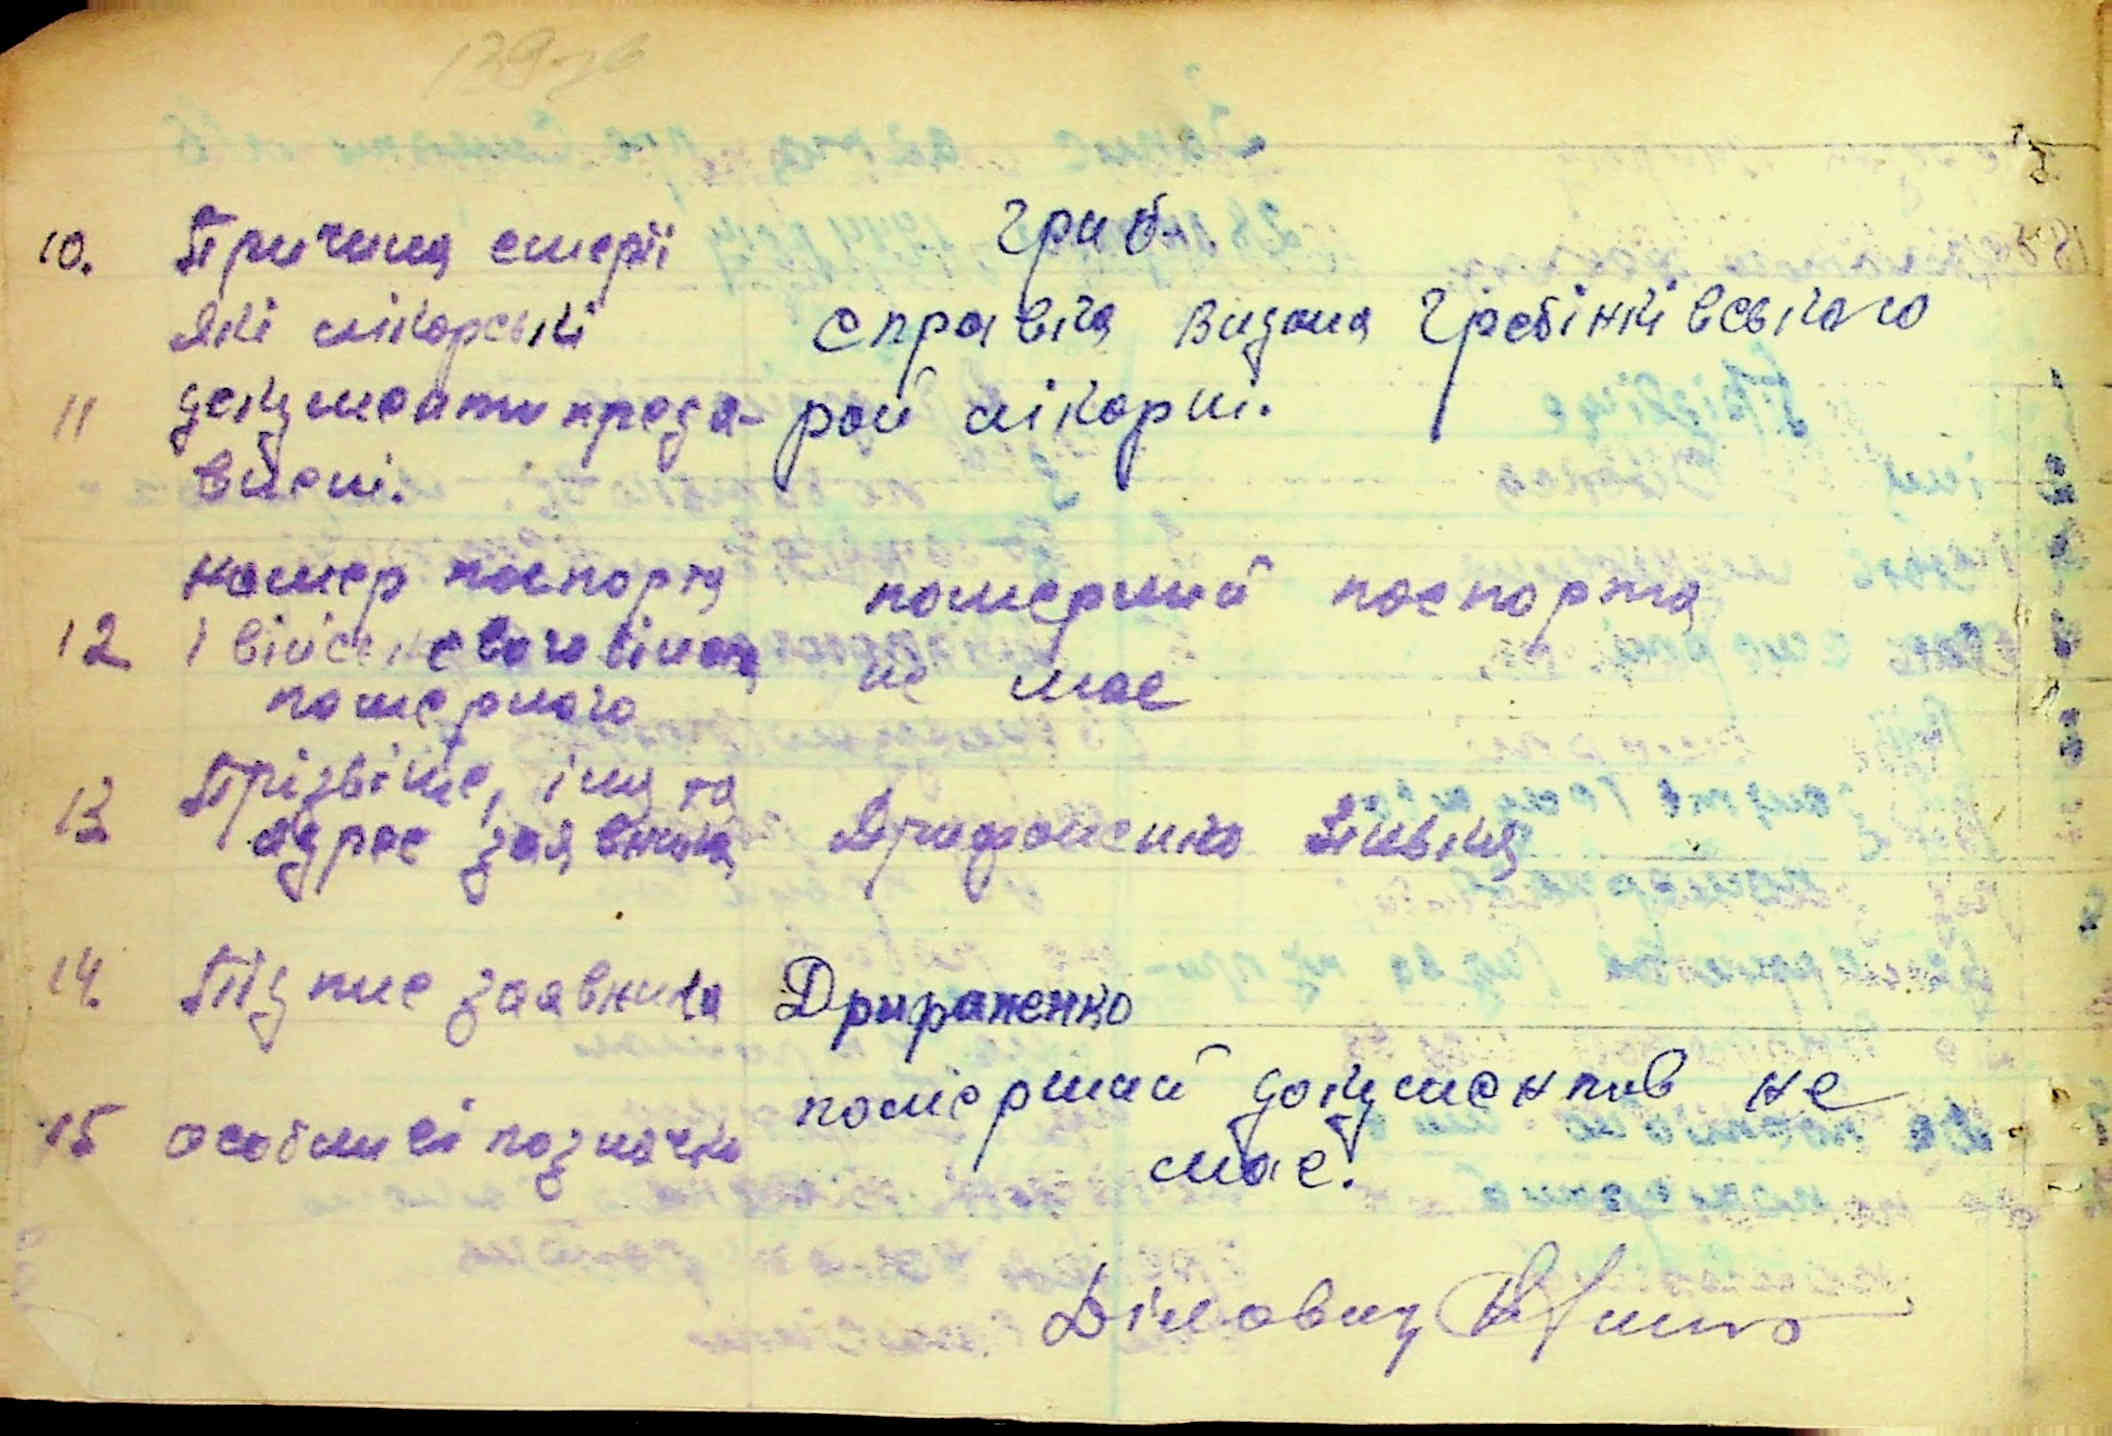 10. Причина смерті грип.
Які лікарські справка видана Гребінківського
11 документи предя- рай лікарні.
влені.
номер паспорту померший паспорта
12 і військового білета не має
померлого
13. Прізвіще, імя та
адрес заявника
14. Підпис заявника
15 особливі позначки помєрший документов не
має.
Діловод